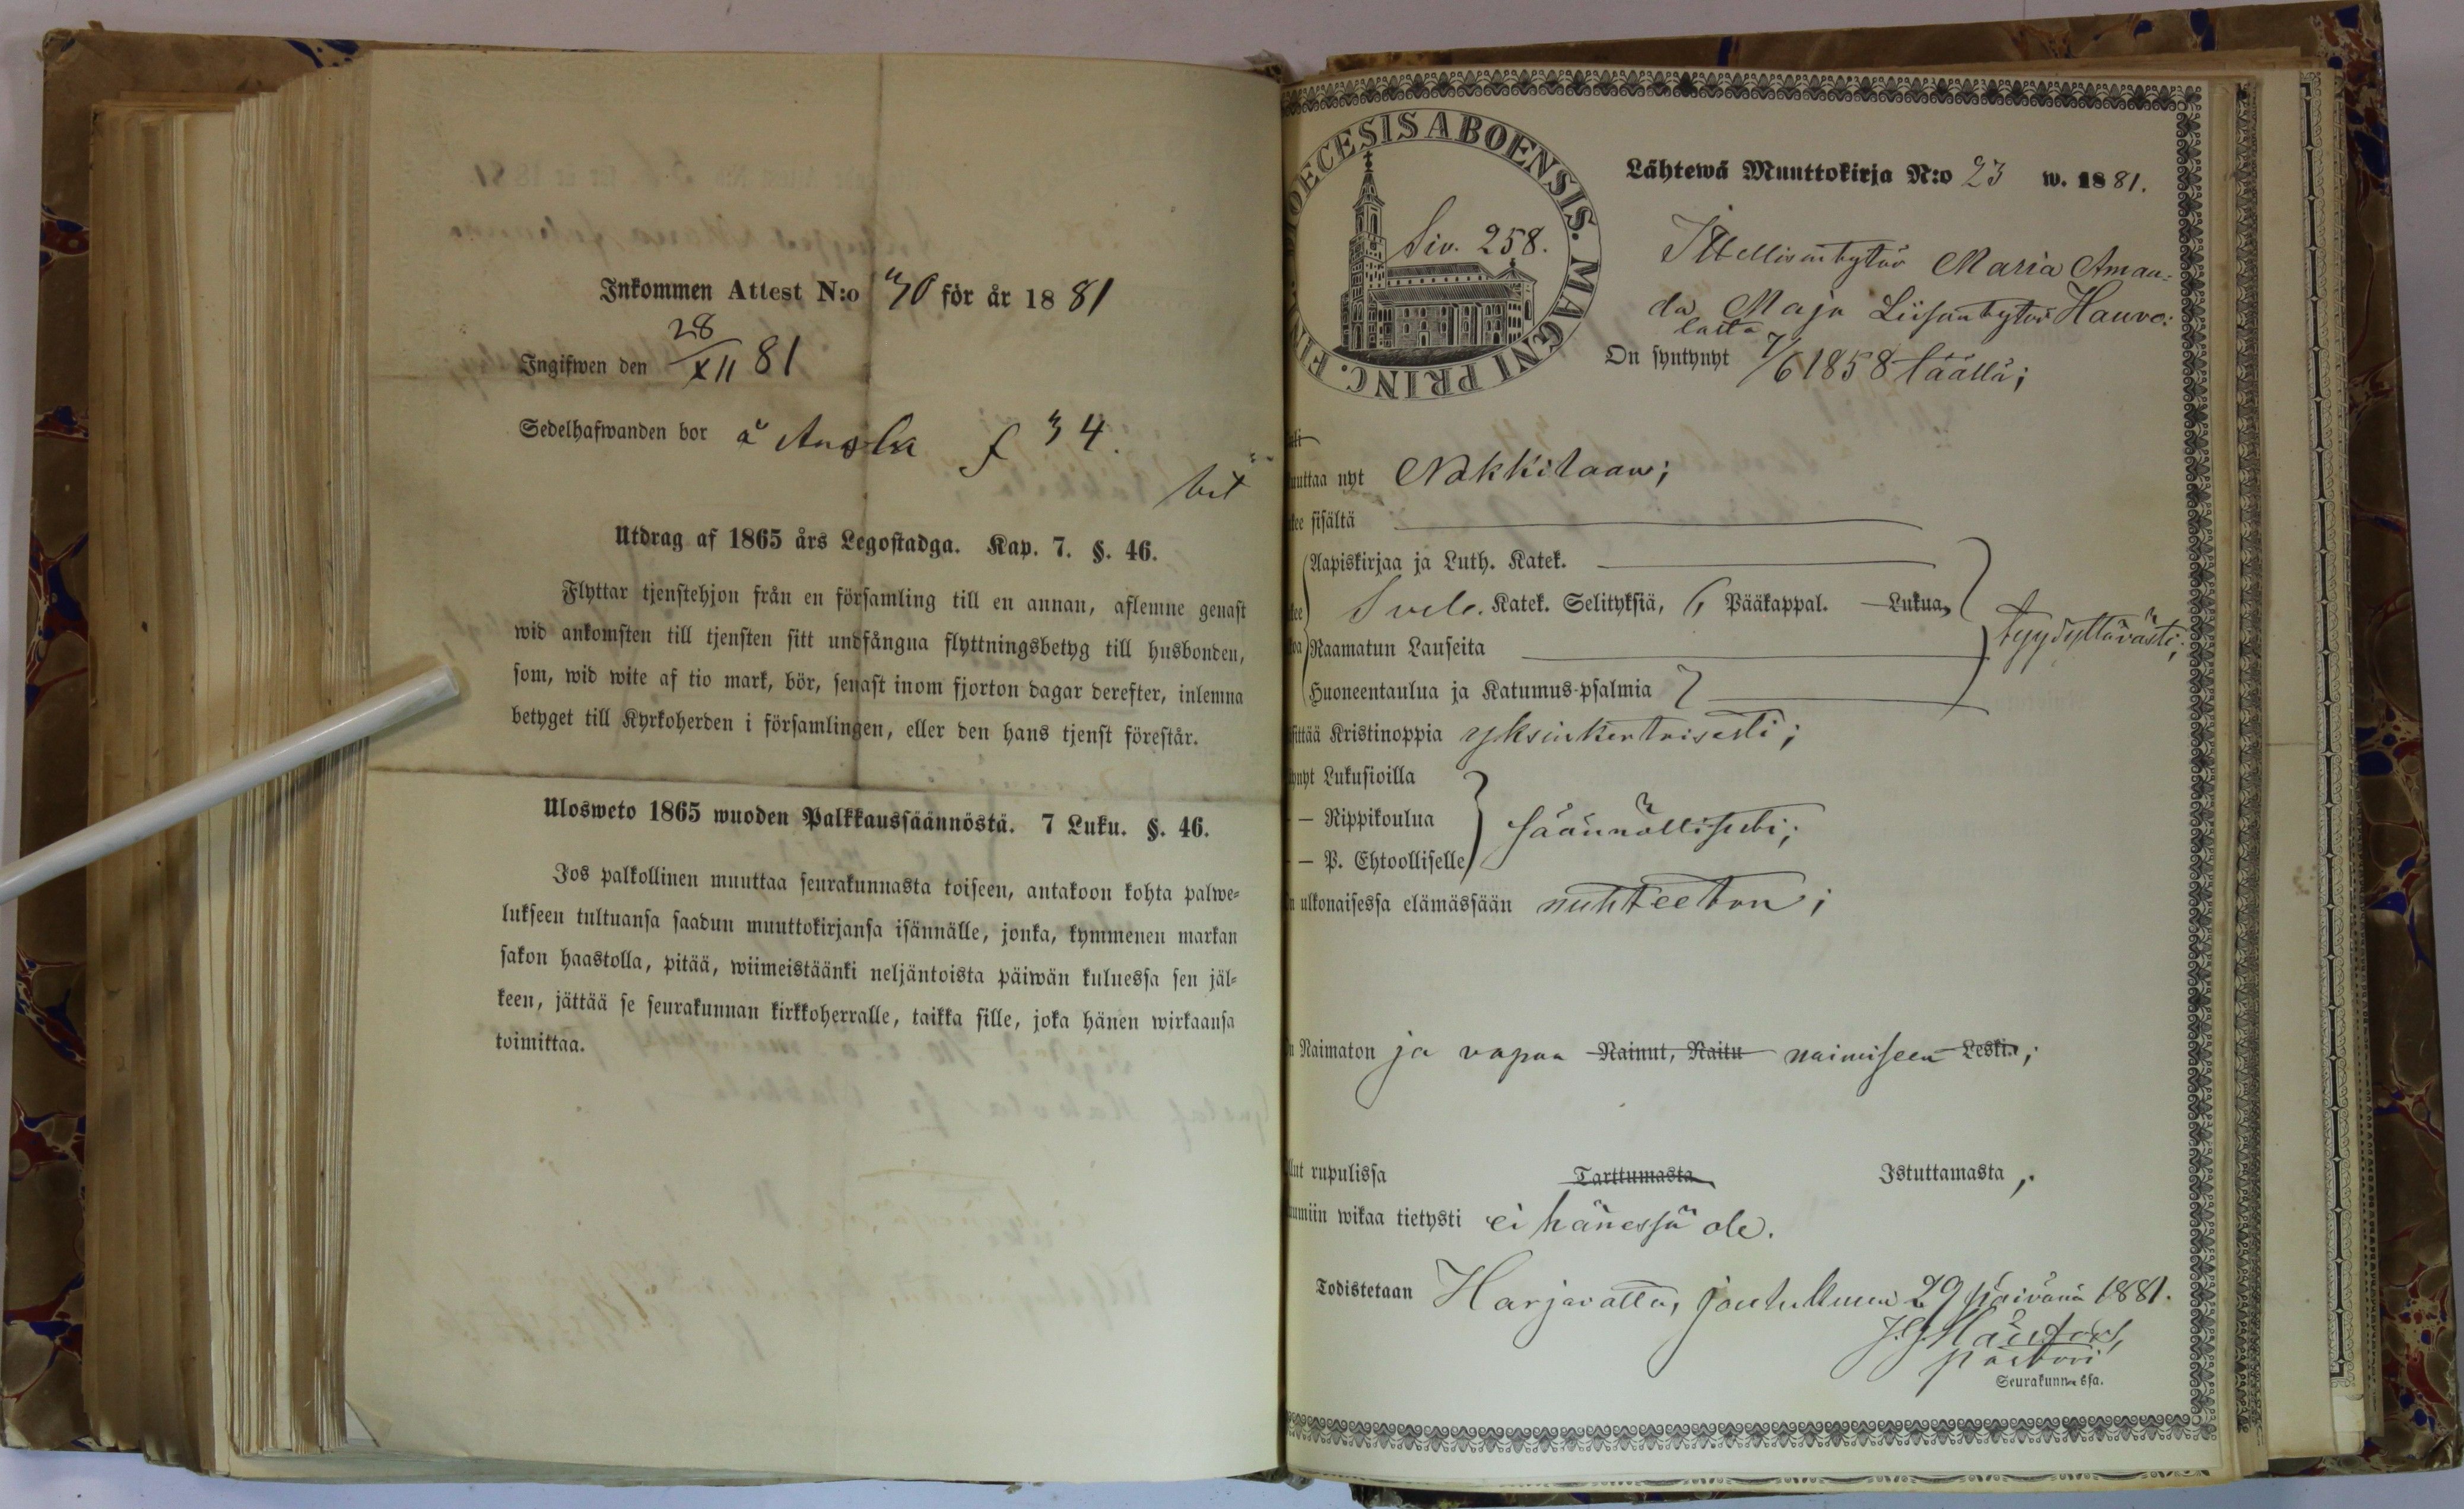 Inkommen Attest N:o 40 för år 1881
Ingifwen den 28/XII 81
Sedelhafwanden bor å Anola f 34.
Utdrag af 1865 års Legostadga. Kap. 7. §. 46.
Flyttar tjenstehjon från en församling till en annan, aflemne genast
wid ankomsten till tjensten sitt undfångna flyttningsbetyg till husbonden,
som, wid wite af tio mark, bör, senast inom fjorton dagar derefter, inlemna
betyget till Kyrkoherden i församlingen, eller den hans tjenst förestår.
Ulosweto 1865 wuoden Palkkaussäännöstä. 7 Luku. §. 46.
Jos palkollinen muuttaa seurakunnasta toiseen, antakoon kohta palwe=
lukseen tultuansa saadun muuttokirjansa isännälle, jonka, kymmenen markan
sakon haastolla, pitää, wiimeistäänki neljäntoista päiwän kuluessa sen jäl=
keen, jättää se seurakunnan kirkkoherralle, taikka sille, joka hänen wirkaansa
toimittaa.
DIOECESIS ABOENSIS. MAGNI PRINC. FINL.
Siv. 258.
Lähtewä Muuttokirja N:o 23 w. 1881.
Itsellisentytär Maria Aman-
da Maja Liisantytär Hauvo-
lasta
On syntynyt 7/6 1858 täällä;
uuttaa nyt Nakkilaan;
kee sisältä
Aapiskirjaa ja Luth. Katek.
Svel. Katek. Selityksiä, 6 Pääkappal. Lukua,
Raamatun Lauseita
tyydyttävästi;
Huoneentaulua ja Katumus-psalmia
sittää Kristinoppia yksinkertaisesti;
ynyt Lukusioilla
— Rippikoulua säännöllisesti;
— P. Ehtoolliselle
n ulkonaisessa elämässään nuhteeton;
n Naimaton ja vapaa Nainut, Naitu naimiseen Leski;
llut rupulissa Tarttumasta Istuttamasta,
umiin wikaa tietysti ei hänessä ole.
Todistetaan Harjavalta, joulukuun 29 päivänä 1881.
pastori
Seurakunnassa.